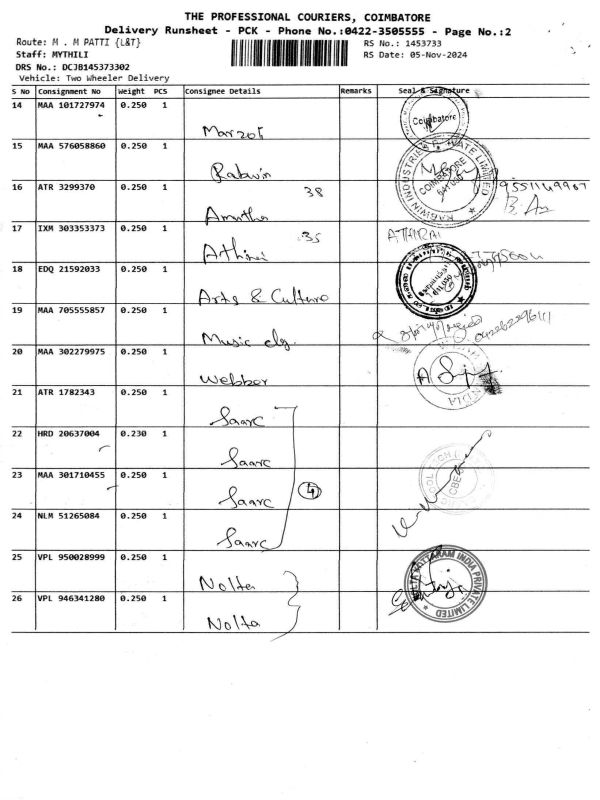 THE PROFESSIONAL COURIERS, COIMBATORE
Delivery Runsheet - PCK - Phone No.:0422-3505555 - Page No.:2
Route: M . M PATTI {L&T}
RS No.: 1453733
Staff: MYTHILI
RS Date: 05-Nov-2024
DRS No.: DCJB145373302
Vehicle: Two Wheeler Delivery
S No Consignment No Weight PCS Consignee Details Remarks Seal & Signature
14 MAA 101727974 0.250 1
Coimbatore
15 MAA 576058860 0.250 1 Rabwin
COIMBATORE
641 050
PRIVATE LIMITED
16 ATR 3299370 0.250 1 Amutha 38
9551149967
17 IXM 303353373 0.250 1 Athirai 35 ATHIRAI
18 EDQ 21592033 0.250 1 Arts & Culture
19 MAA 705555857 0.250 1 Music clg.
20 MAA 302279975 0.250 1 Webber
INDIA
21 ATR 1782343 0.250 1 Saarc
22 HRD 20637004 0.230 1 Saarc
23 MAA 301710455 0.250 1 Saarc
4
24 NLM 51265084 0.250 1 Saarc
25 VPL 950028999 0.250 1 Nolta
NOLTA KATTARAM INDIA PRIVATE LIMITED
26 VPL 946341280 0.250 1 Nolta